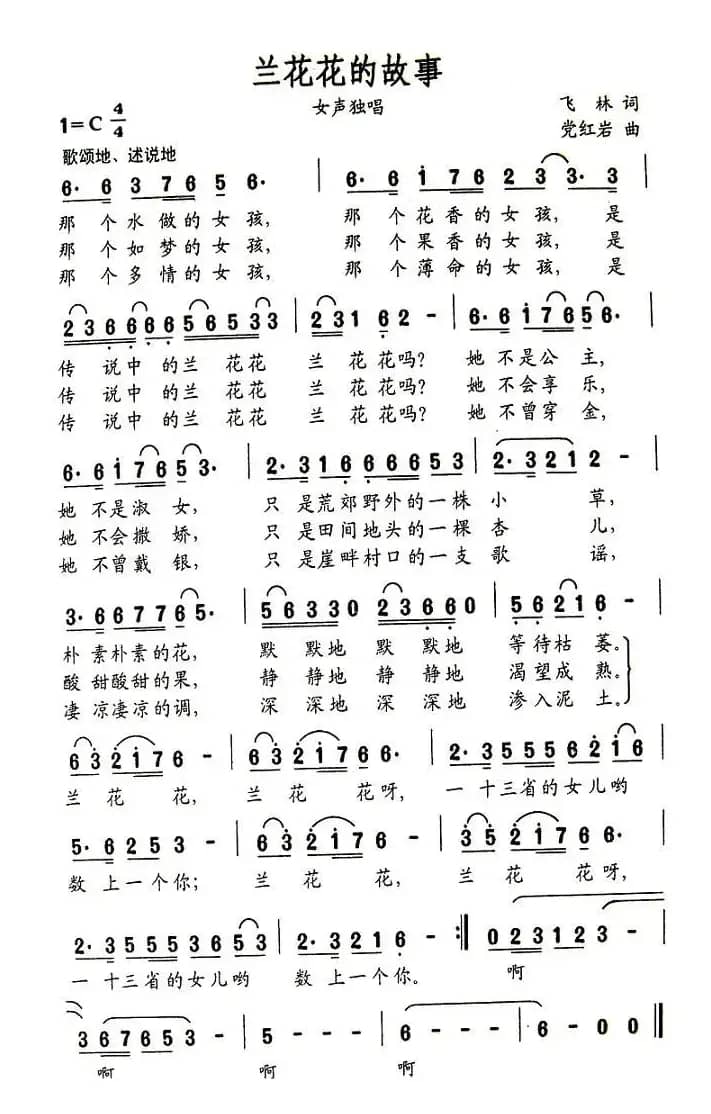 兰花花的故事
女声独唱
1=C 4/4
飞林词
党红岩曲
歌颂地、述说地
6· 6 3 7 6 5 6· | 6· 6 i 1 7 6 2 3 3· 3
那个水做的女孩, 那个花香的女孩, 是
那个如梦的女孩, 那个果香的女孩, 是
那个多情的女孩, 那个薄命的女孩, 是
2 3 6 6 6 6 5 6 5 3 3 | 2 3 1 6 2 - | 6· 6 i 7 6 5 6· |
传说中的兰花花 兰花花吗? 她不是公主,
传说中的兰花花 兰花花吗? 她不会享乐,
传说中的兰花花 兰花花吗? 她不曾穿金,
6· 6 i 7 6 5 3· | 2· 3 1 6 6 6 6 5 3 | 2· 3 2 1 2 - |
她不是淑女, 只是荒郊野外的一株小草,
她不会撒娇, 只是田间地头的一棵杏儿,
她不曾戴银, 只是崖畔村口的一支歌谣,
3· 6 6 7 7 6 5· | 5 6 3 3 0 2 3 6 6 0 | 5 6 2 1 6 - |
朴素朴素的花, 默默地 默默地 等待枯萎。
酸甜酸甜的果, 静静地 静静地 渴望成熟。
凄凉凄凉的调, 深深地 深深地 渗入泥土。
6 3 2 i 7 6 - | 6 3 2 i 7 6 6· | 2· 3 5 5 5 6 2 i 6 |
兰花花, 兰花花呀, 一十三省的女儿哟
5· 6 2 5 3 - | 6 3 2 i 7 6 - | 3 5 2 i 7 6 6· |
数上一个你; 兰花花, 兰花花呀,
2· 3 5 5 5 3 6 5 3 | 3· 3 2 1 6 - :‖ 0 2 3 1 2 3 - |
一十三省的女儿哟 数上一个你。 啊
3 6 7 6 5 3 | 5 - - - | 6 - - - | 6 - 0 0 ‖
啊 啊 啊